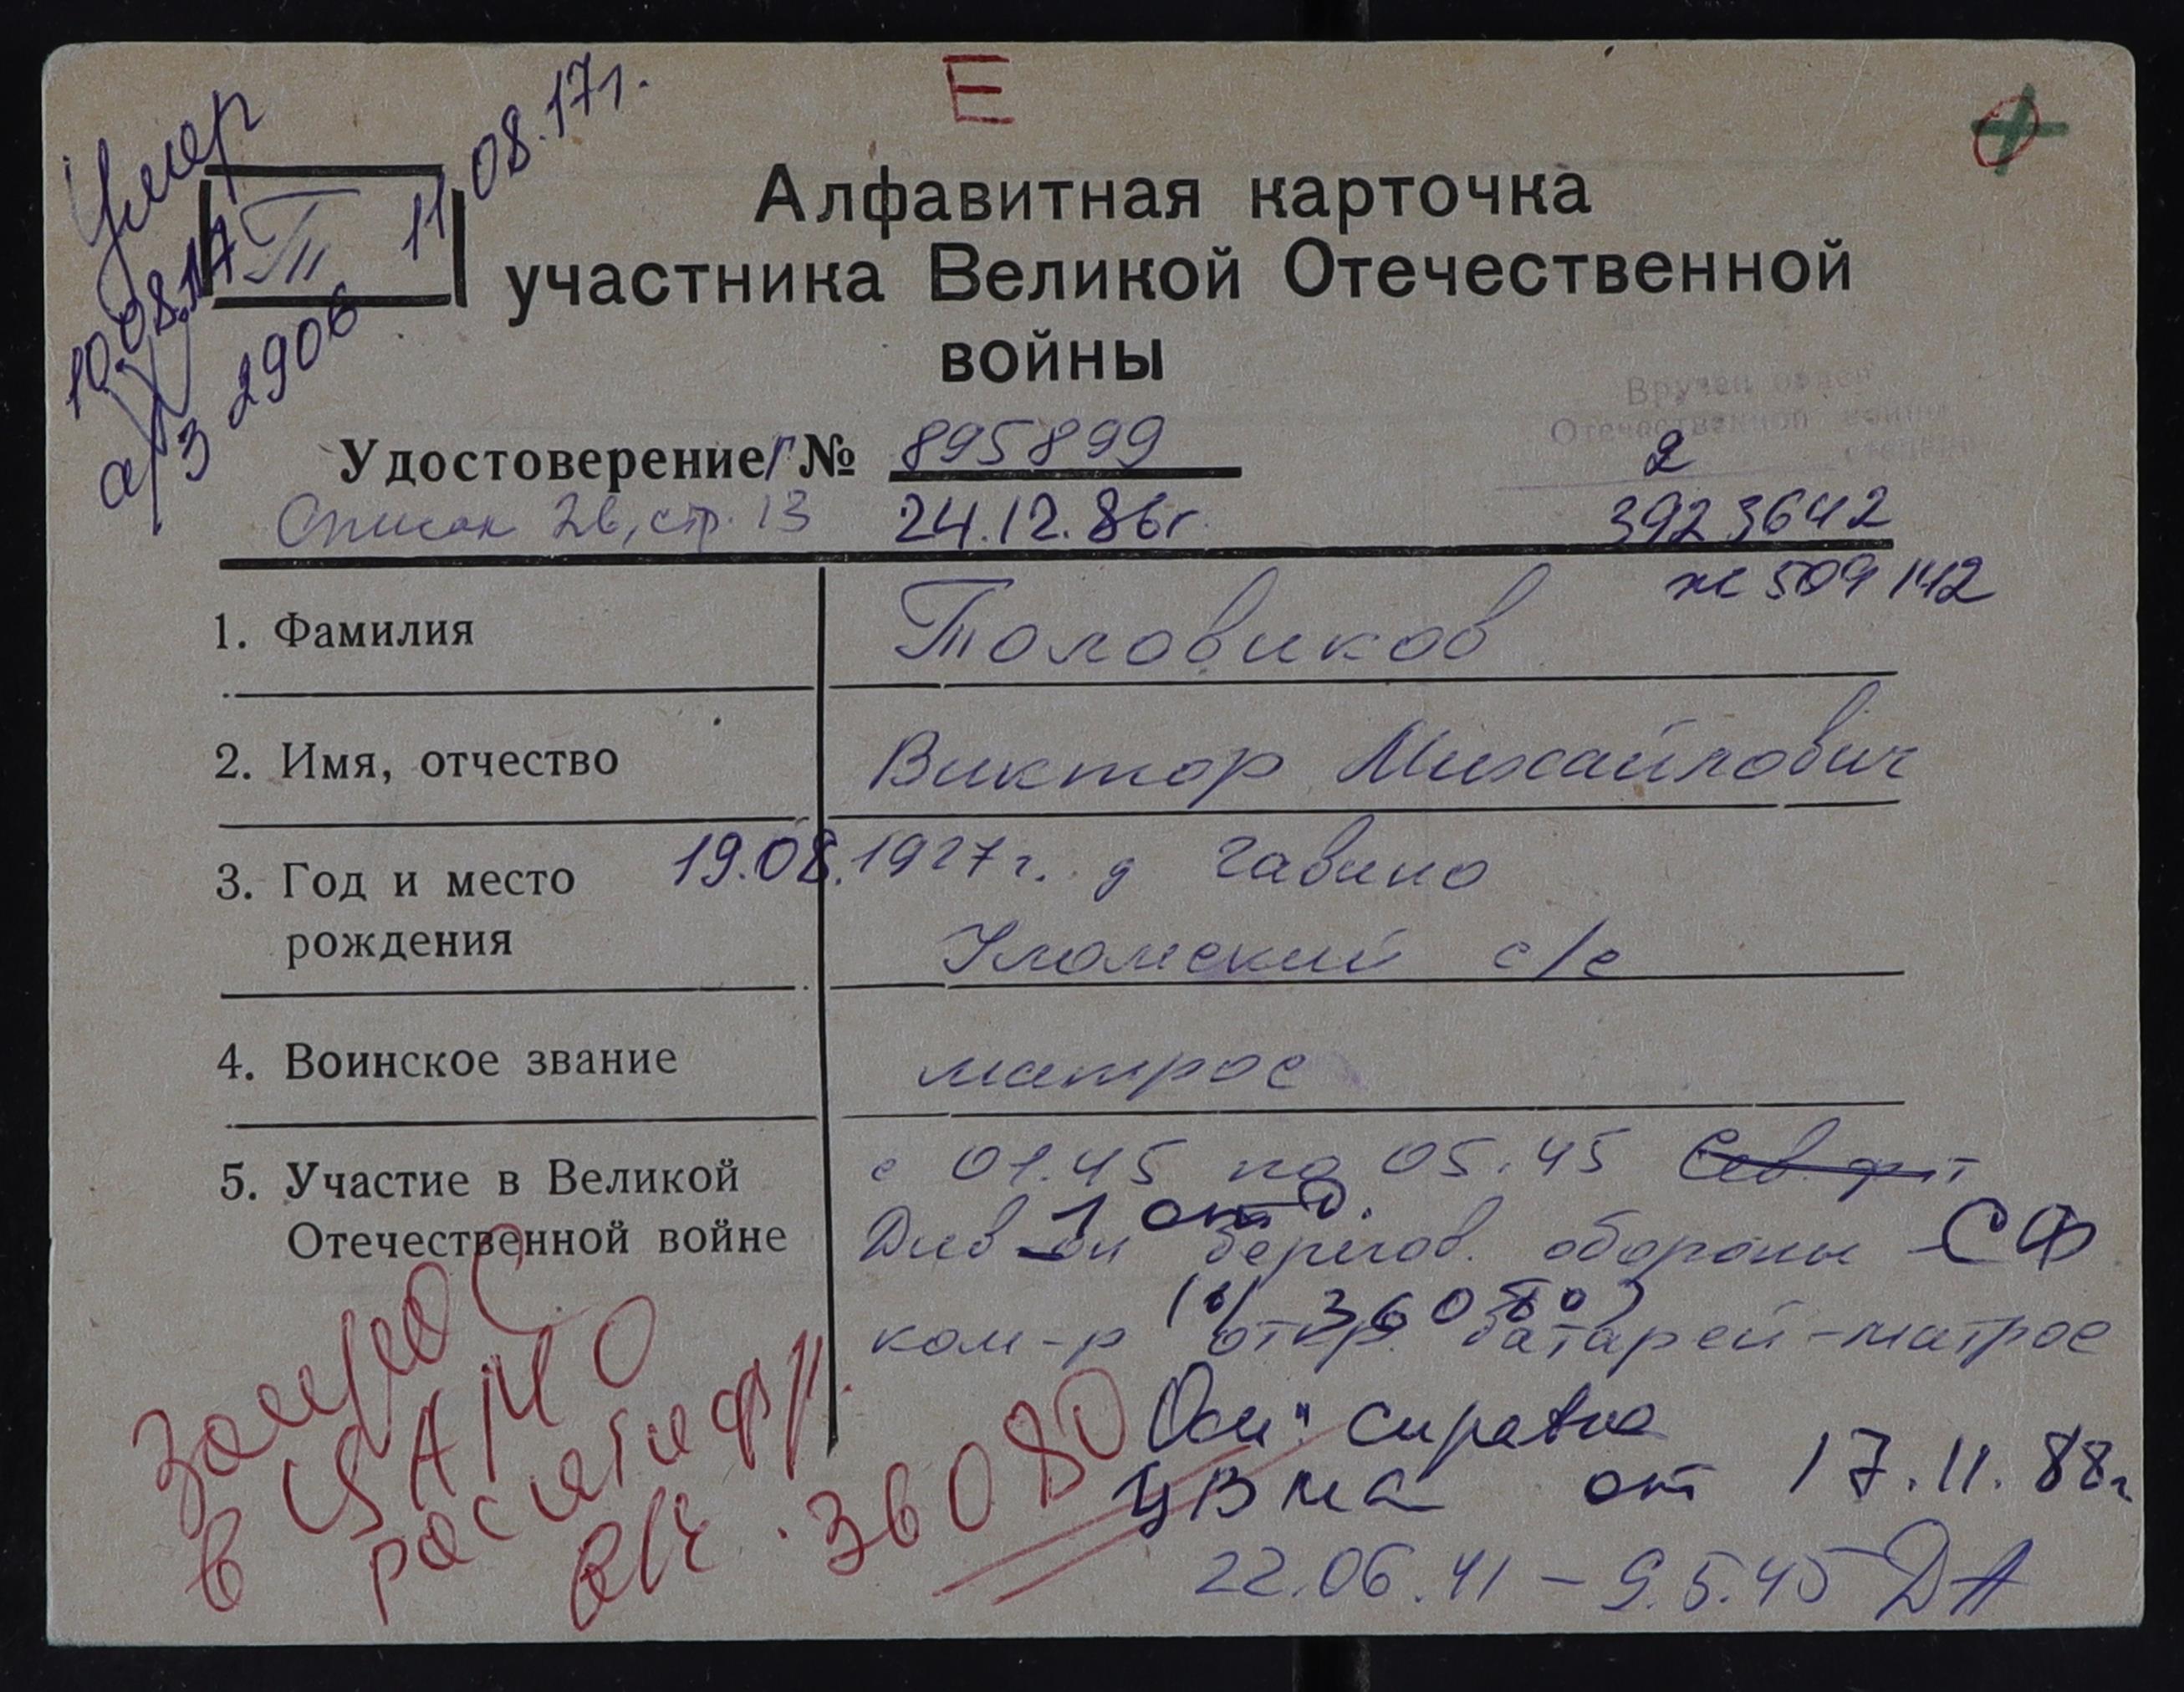 Е
Умер
10.08.17
а/з 2906
11.08.17г.
Т
Алфавитная карточка
участника Великой Отечественной
войны
Вручен орден
Отечественной войны
2 степени
Удостоверение Г № 895899
Список 26, стр. 13 24.12.86г. 3923642
ж 509142
1. Фамилия Толовиков
2. Имя, отчество Виктор Михайлович
3. Год и место рождения 19.08.1927г. д Гавино
Уломский с/с
4. Воинское звание матрос
5. Участие в Великой Отечественной войне с 01.45 по 05.45 Сев. фл-т
Див-он 1 отд. берегов. обороны СФ
(в/ 36080)
ком-р откр. батарей-матрос
Осн: справка
ЦВМА от 17.11.88г
22.06.41 – 9.5.45 ДА
запрос
в ЦАМО
расшифр.
в/ч 36080